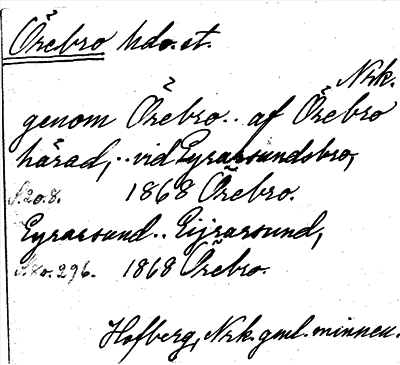 Örebro hdo. st.
Nrk.
genom Örebro.. af Örebro
härad,.. vid Eyrarsundsbro,
S. 20. 8. 1868 Örebro.
Eyrarsund.. Eijrarsund,
S. 20. 296. 1868 Örebro.
Hofberg, Nrk. gml. minnen.